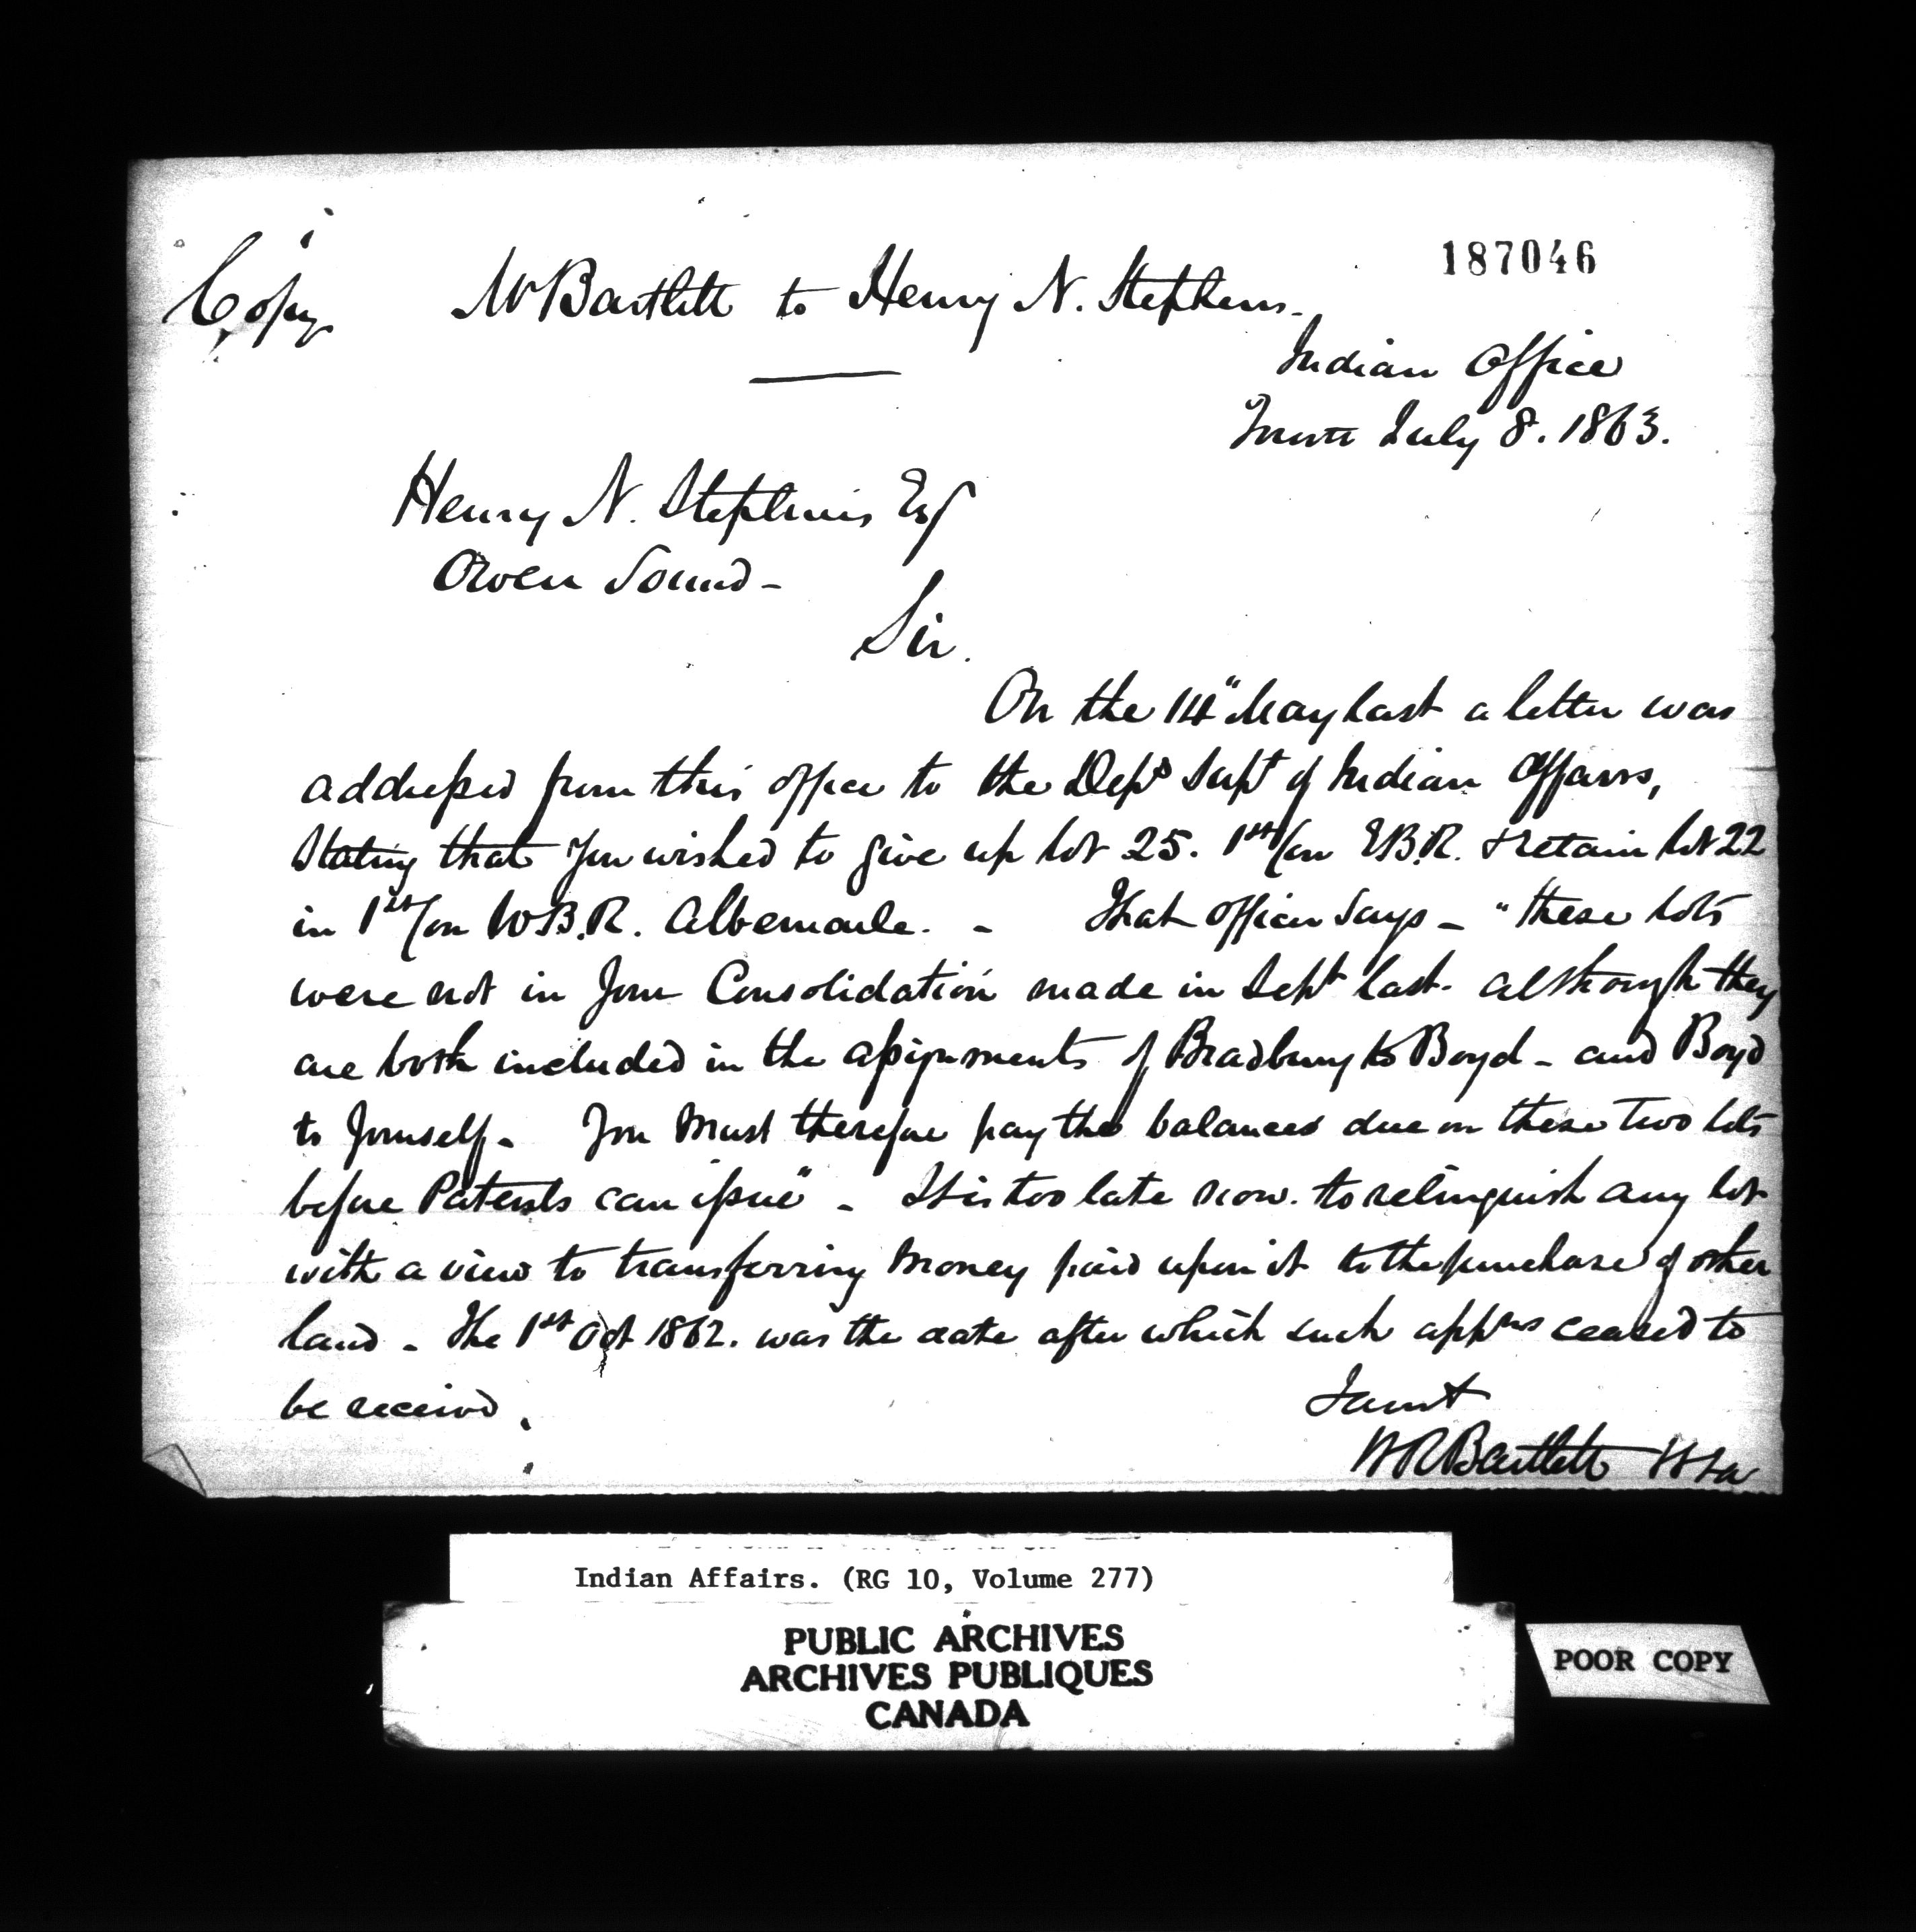 187046
Copy W Bartlett to Henry N. Stephens.
Indian Office
July 8. 1863.
Henry N. Stephens Esq
Owen Sound -
Sir.
On the 14" May last a letter was
addressed from this office to the Depy Supt of Indian Affairs,
Stating that you wished to give up lot 25. 1st Con E.B.R. & retain lot 22
in 1st Con W.B.R. Albemarle. - That officer says - "these lots
were not in your Consolidation made in Sept last. although they
are both included in the assignments of Bradbury to Boyd - and Boyd
to yourself - You must therefore pay the balances due on these two lots
before Patents can issue" - It is too late now. to relinquish any lot
with a view to transferring money paid upon it to the purchase of other
land - The 1st Oct 1862. was the date after which such appns ceased to
be received.
WRBartlett
Indian Affairs. (RG 10, Volume 277)
PUBLIC ARCHIVES
ARCHIVES PUBLIQUES
CANADA
POOR COPY